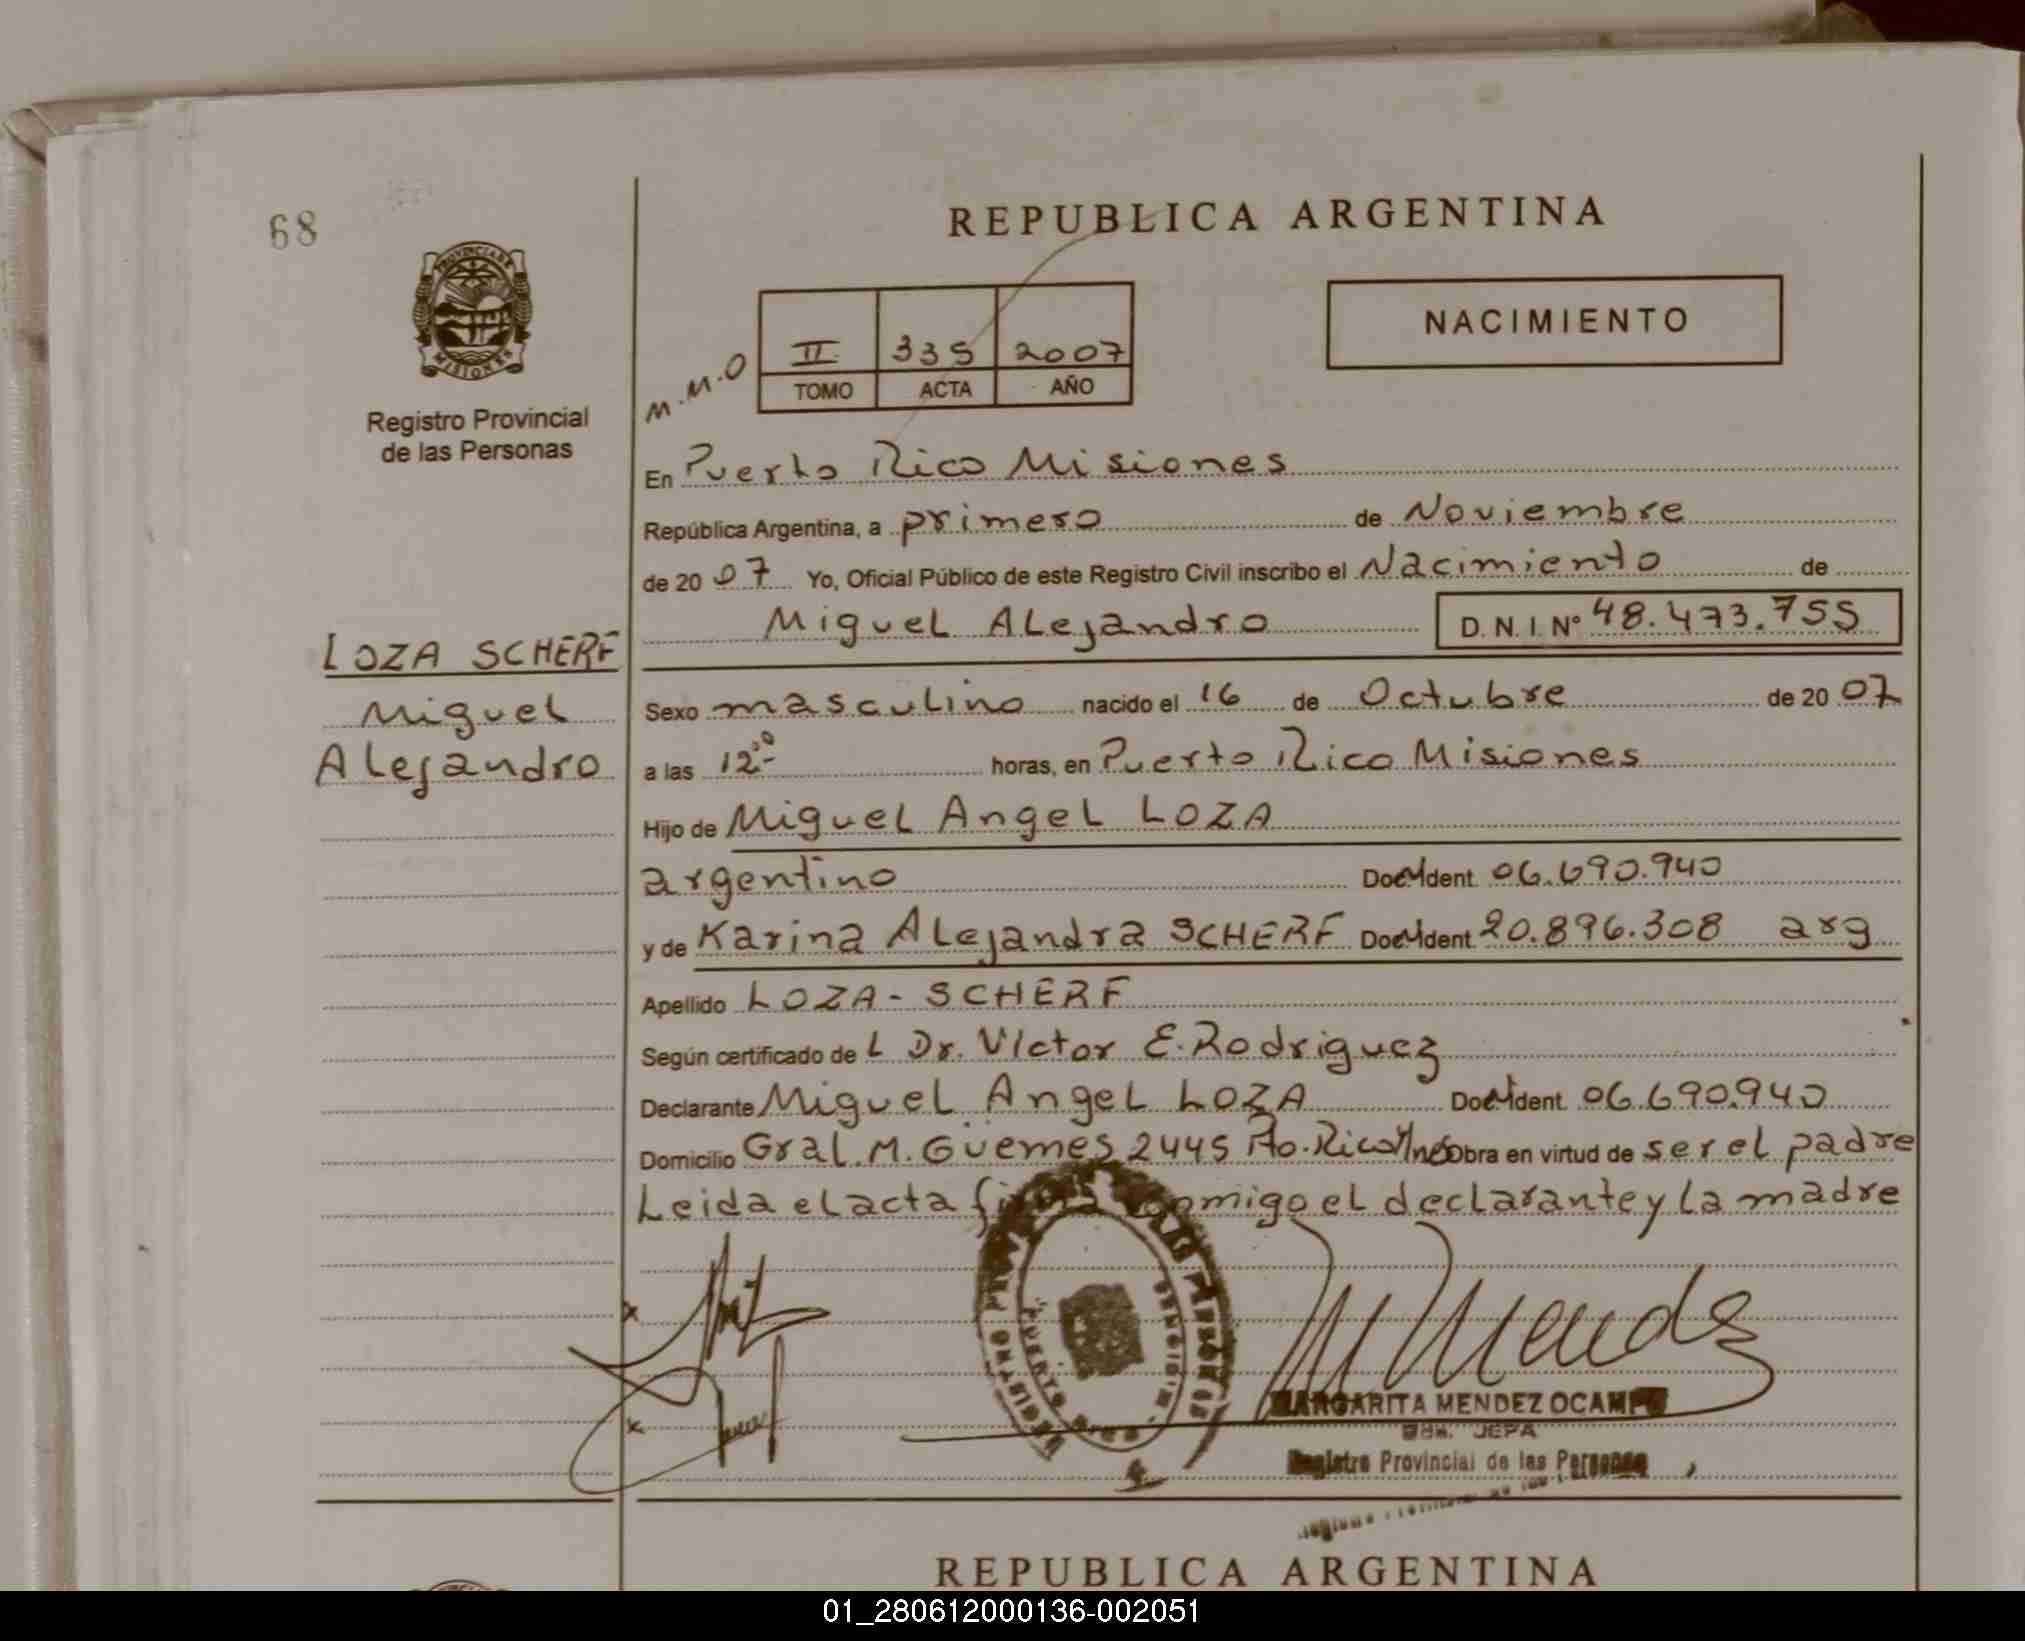 68
REPUBLICA ARGENTINA
PROVINCIA DE
MISIONES
Registro Provincial
de las Personas
M.M.O
II 335 2007
TOMO ACTA AÑO
NACIMIENTO
En Puerto Rico Misiones
República Argentina, a primero de Noviembre
de 20 07 Yo, Oficial Público de este Registro Civil inscribo el Nacimiento de
Miguel Alejandro D.N.I. Nº 48.473.755
LOZA SCHERF
Miguel
Alejandro
Sexo masculino nacido el 16 de Octubre de 20 07
a las 12.00 horas, en Puerto Rico Misiones
Hijo de Miguel Angel LOZA
argentino Doc. Ident. 06.690.940
y de Karina Alejandra SCHERF Doc. Ident. 20.896.308 arg
Apellido LOZA - SCHERF
Según certificado de L Dr. Victor E. Rodriguez
Declarante Miguel Angel LOZA Doc. Ident. 06.690.940
Domicilio Gral. M. Güemes 2445 Pto. Rico Mnes Obra en virtud de ser el padre
Leida el acta firma conmigo el declarante y la madre
x
x
M Mendez
MARGARITA MENDEZ OCAMPO
JEFA
Registro Provincial de las Personas
REPUBLICA ARGENTINA
01_280612000136-002051